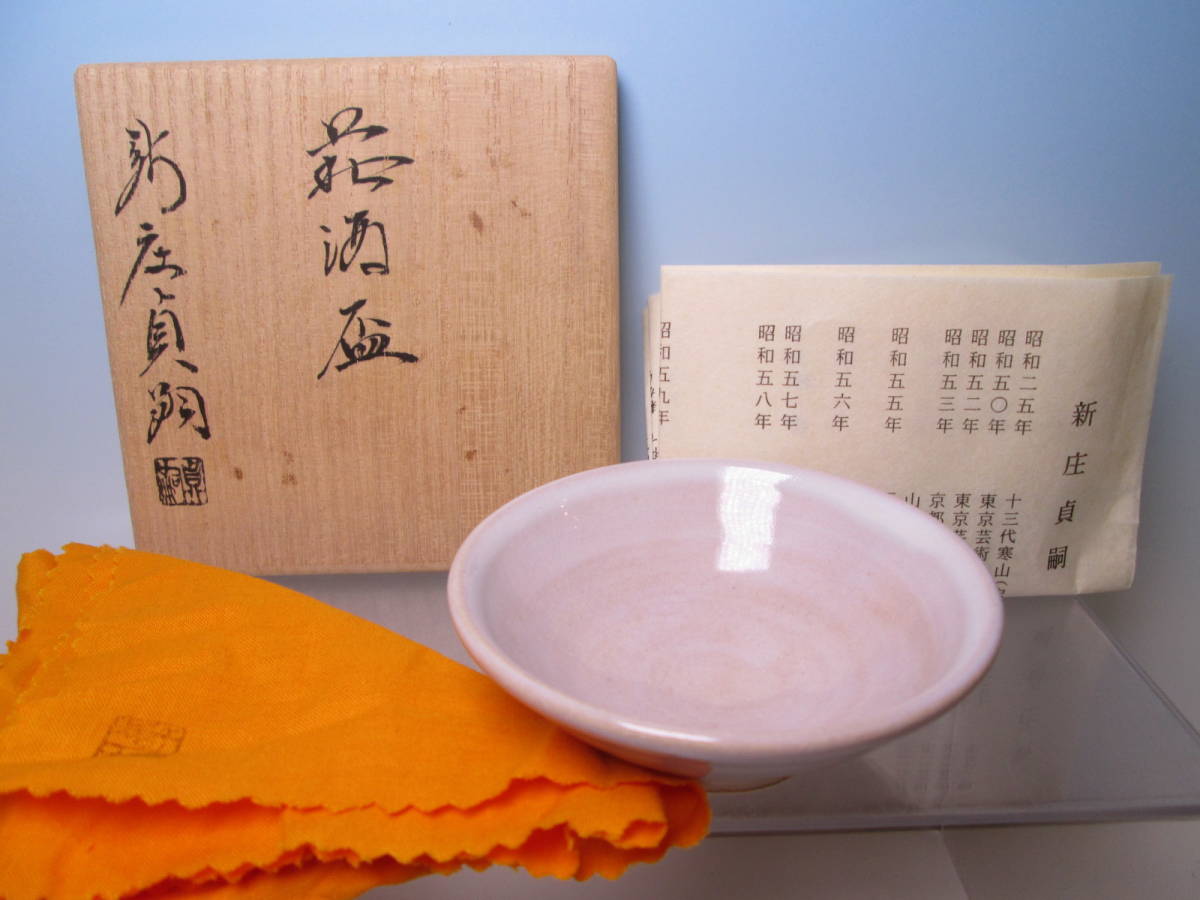 萩酒盃
新庄貞嗣
新庄貞嗣
昭和二五年
昭和五〇年
昭和五二年
昭和五三年
昭和五五年
昭和五六年
昭和五七年
昭和五八年
昭和五九年
十三代寒山(
東京芸術
東京芸
京都
山